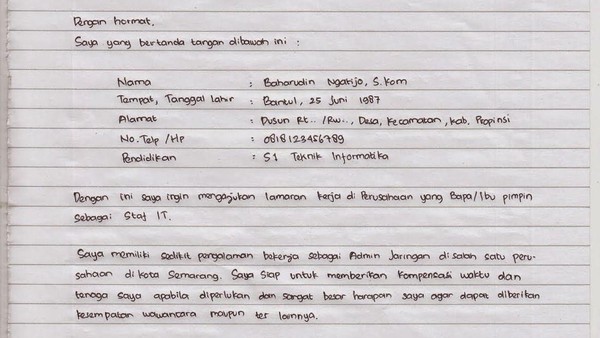 Dengan hormat.
Saya yang bertanda tangan dibawah ini :
Nama : Baharudin Ngatijo, S.Kom
Tempat, Tanggal lahir : Bantul, 25 Juni 1987
Alamat : Dusun Rt.. /Rw.., Desa, Kecamatan, Kab. Propinsi
No. Telp /Hp : 0818123456789
Pendidikan : S1 Teknik Informatika
Dengan ini saya ingin mengajukan lamaran kerja di Perusahaan yang Bapa/Ibu pimpin
sebagai Staf IT.
Saya memiliki sedikit pengalaman bekerja sebagai Admin Jaringan di salah satu peru-
sahaan di kota Semarang. Saya Siap untuk memberikan kompensasi waktu dan
tenaga saya apabila diperlukan dan sangat besar harapan saya agar dapat diberikan
kesempatan wawancara maupun tes lainnya.